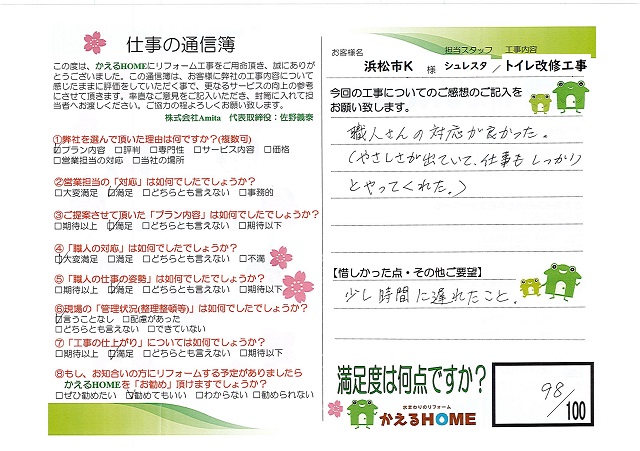 仕事の通信簿
この度は、かえるHOMEにリフォーム工事をご用命頂き、誠にありが
とうございました。この通信簿は、お客様に弊社の工事内容について
感じたままに評価をしていただく事で、更なるサービスの向上の参考
にさせて頂きます。率直なご意見をご記入いただき、封筒に入れて担
当者へお渡しください。ご協力の程よろしくお願い致します。
株式会社Amita 代表取締役：佐野義泰
①弊社を選んで頂いた理由は何ですか?(複数可)
☑プラン内容 □評判 □専門性 □サービス内容 □価格
□営業担当の対応 □当社の場所
②営業担当の「対応」は如何でしたでしょうか?
□大変満足 ☑満足 □どちらとも言えない □事務的
③ご提案させて頂いた「プラン内容」は如何でしたでしょうか?
□期待以上 ☑満足 □どちらとも言えない □期待以下
④「職人の対応」は如何でしたでしょうか?
☑大変満足 □満足 □どちらとも言えない □不満
⑤「職人の仕事の姿勢」は如何でしたでしょうか?
□期待以上 ☑満足 □どちらとも言えない □期待以下
⑥現場の「管理状況(整理整頓等)」は如何でしたでしょうか?
☑言うことなし □配慮があった
□どちらとも言えない □できていない
⑦「工事の仕上がり」については如何でしたでしょうか?
□期待以上 ☑満足 □どちらとも言えない □期待以下
⑧もし、お知合いの方にリフォームする予定がありましたら
かえるHOMEを「お勧め」頂けますでしょうか?
□ぜひ勧めたい ☑勧めてもいい □わからない □勧められない
お客様名 担当スタッフ 工事内容
浜松市K 様 シュレスタ / トイレ改修工事
今回の工事についてのご感想のご記入を
お願い致します。
職人さんの対応が良かった。
(やさしさが出ていて、仕事もしっかり
とやってくれた。)
【惜しかった点・その他ご要望】
少し時間に遅れたこと。
満足度は何点ですか?
98/100
水まわりのリフォーム
かえるHOME